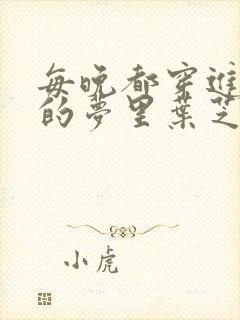 每晚都穿進
的夢里葉芝
小虎